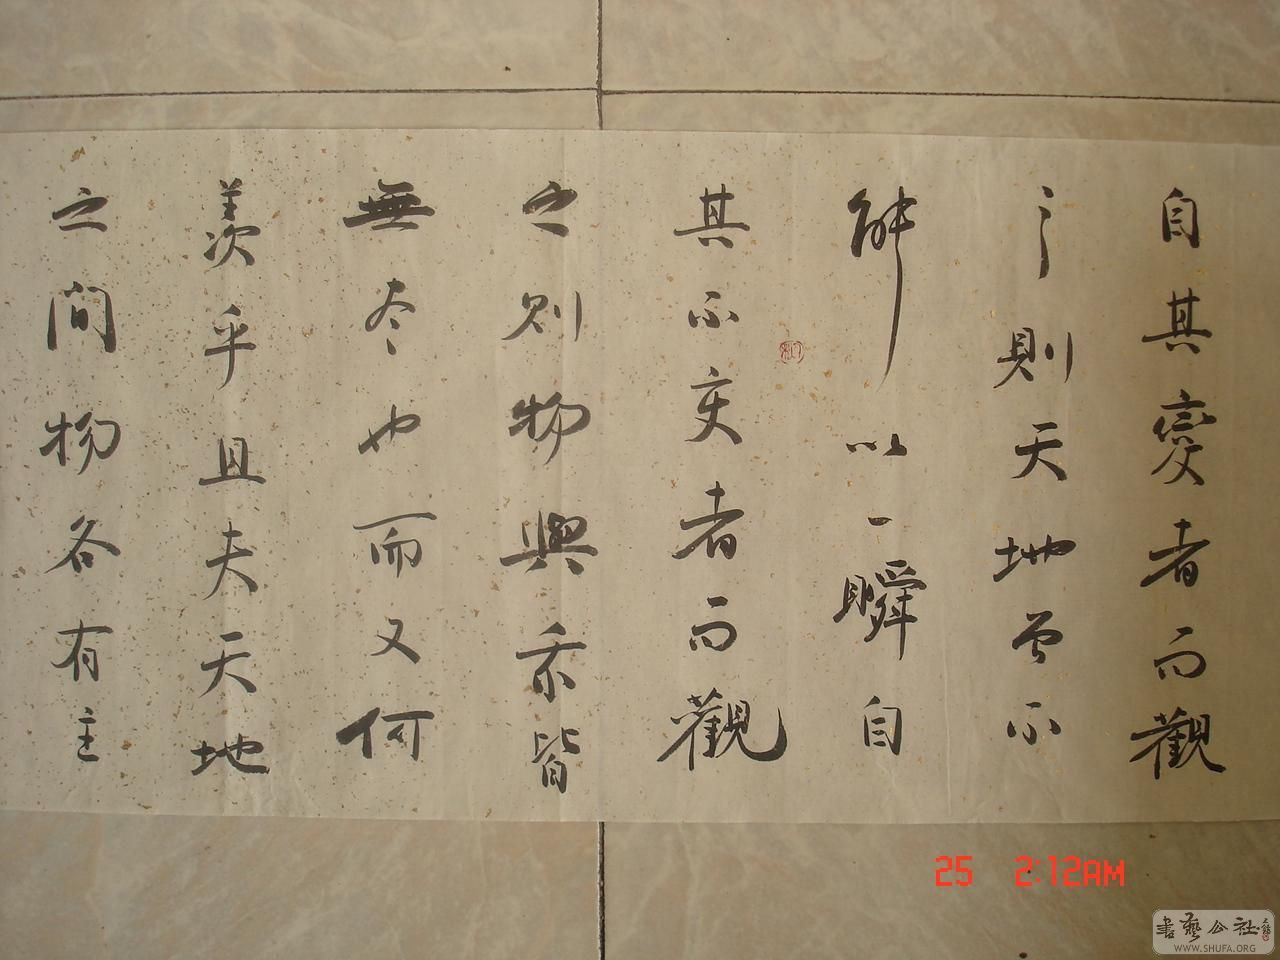 自其變者而觀
之則天地曾不
能以一瞬自
其不变者而觀
之則物與我皆
無尽也而又何
羨乎且夫天地
之間物各有主
25 2:12AM
書藝公社
WWW.SHUFA.ORG